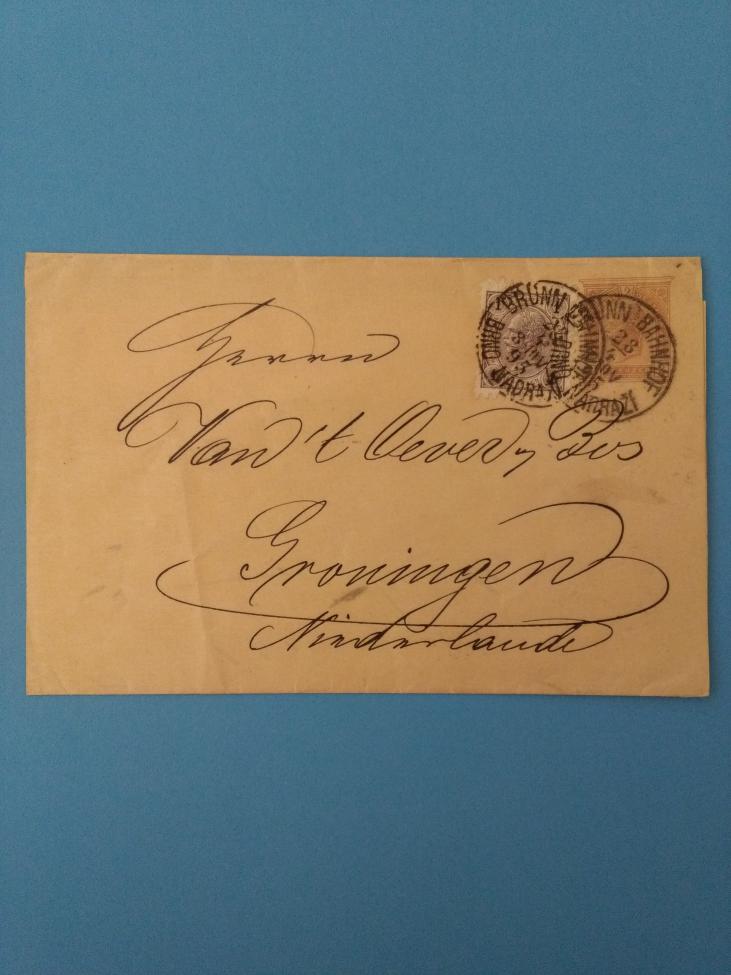 BRÜNN BAHNHOF
BRNO NÁDRAŽÍ
BRÜNN BAHNHOF
28
NÁDRAŽÍ
Herrn
Van 't Oever & Bos
Groningen
Niederlande